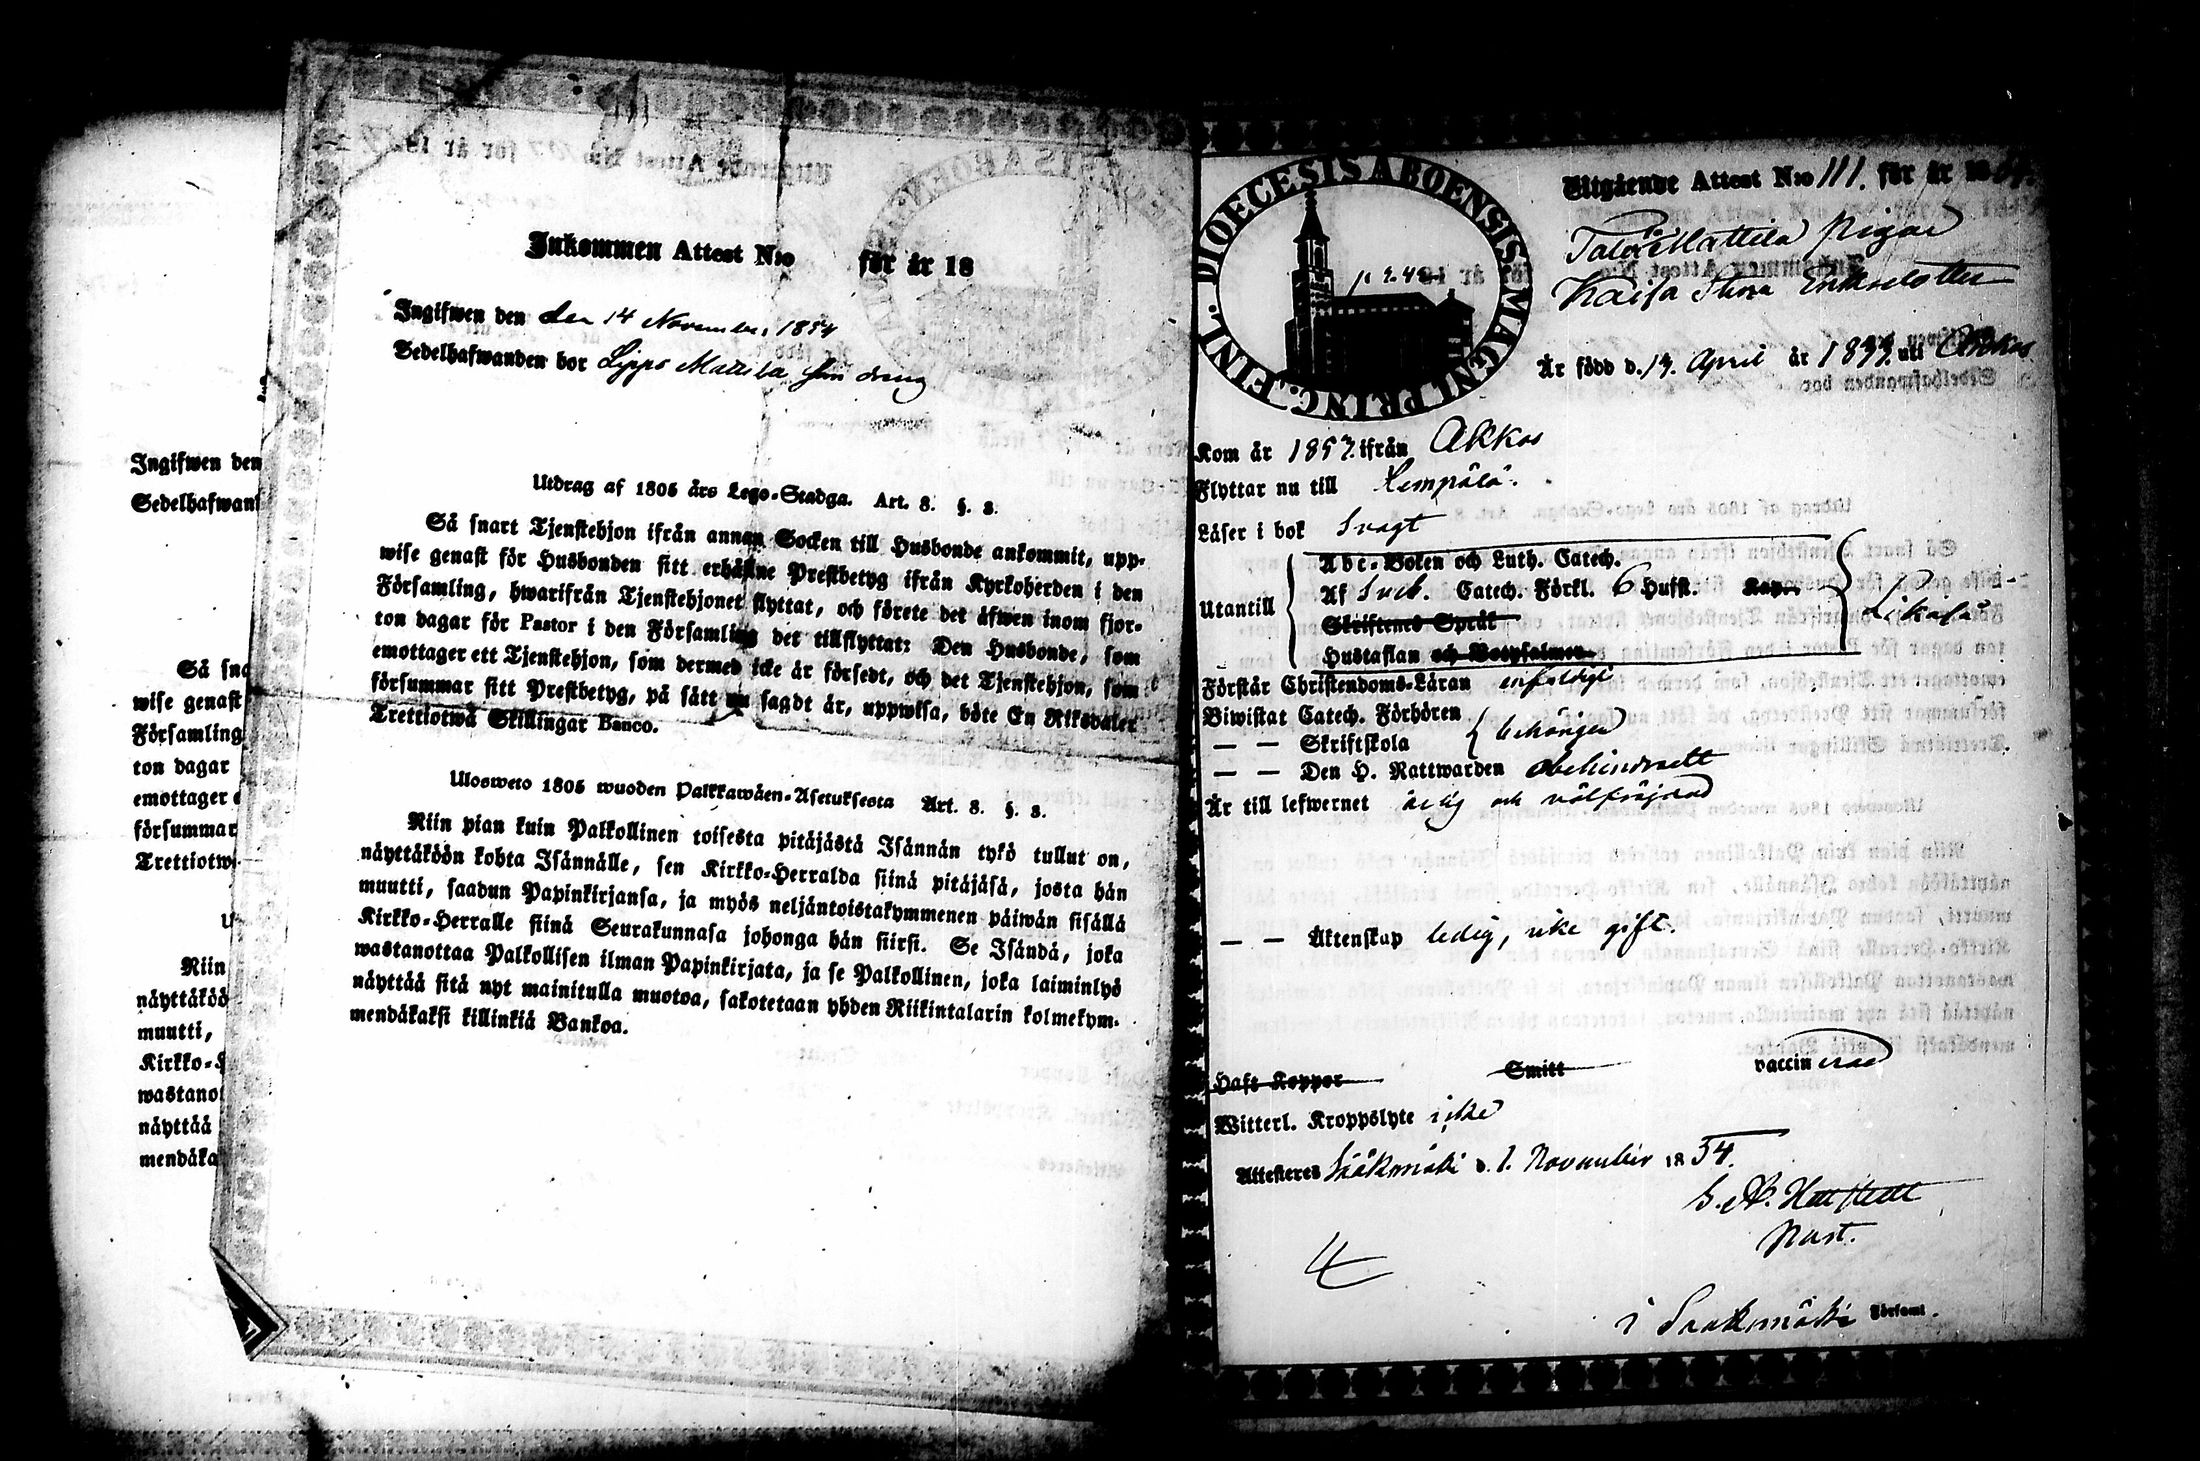 Inkommen Attest N:o för år 18
Ingifwen den den 14 November 1854
Sedelhafwanden bor Lippo Mattila som dreng
Utdrag af 1805 års Lego-Stadga. Art. 8. §. 8.
Så snart Tjenstehjon ifrån annan Socken till Husbonde ankommit, upp-
wise genast för Husbonden sitt erhållne Prestbetyg ifrån Kyrkoherden i den
Församling, hwarifrån Tjenstehjonet flyttat, och förete det äfwen inom fjor-
ton dagar för Pastor i den Församling det tillflyttat: Den Husbonde, som
emottager ett Tjenstehjon, som dermed icke är försedt, och det Tjenstehjon, som
försummar sitt Prestbetyg, på sätt nu sagdt är, uppwisa, böte En Riksdaler
Trettiotwå Skillingar Banco.
Ulosweto 1805 wuoden Palkkawäen-Asetuksesta Art. 8. §. 8.
Niin pian kuin Palkollinen toisesta pitäjästä Isännän tykö tullut on,
näyttäköön kohta Isännälle, sen Kirkko-Herralda siinä pitäjäsä, josta hän
muutti, saadun Papinkirjansa, ja myös neljäntoistakymmenen päiwän sisällä
Kirkko-Herralle siinä Seurakunnasa johonga hän siirsi. Se Isändä, joka
wastanottaa Palkollisen ilman Papinkirjata, ja se Palkollinen, joka laiminlyö
näyttää sitä nyt mainitulla muotoa, sakotetaan yhden Riikintalarin kolmekym-
mendäkaksi killinkiä Bankoa.
Ingifwen den
Sedelhafwan
Så sna
wise genast
Församling
ton dagar
emottager
försummar
Trettiotw
Niin
näyttäkö
muutti,
Kirkko-H
wastanot
näyttää
mendäka
DIOECESIS ABOENSIS. MAGNI PRINC. FINL.
Utgående Attest N:o 111. för år 1854.
Mattila Pigan
Kaisa Stina Eriksdotter
Är född d. 14. April år 1833. uti Akkas
Kom år 1853. ifrån Akkas
Flyttar nu till Lempälä.
Läser i bok Svagt
Utantill
Abc-Boken och Luth. Catech.
Af Sveb. Catech. Förkl. 6 Hufst. Kap.
Skriftenes Språk
Hustaflan och Botpsalmen
Förstår Christendoms-Läran enfaldigt
Biwistat Catech. Förhören
— — Skriftskola behörigen
— — Den H. Nattwarden obehindradt
Är till lefwernet ärlig och välfräjdad
— — Äktenskap ledig, icke gift.
Haft Koppor Smitt vaccinerad
Witterl. Kroppslyte icke
Attesteres Sääksmäki d. 1. November 1854.
Past.
i Sääksmäki Församl.